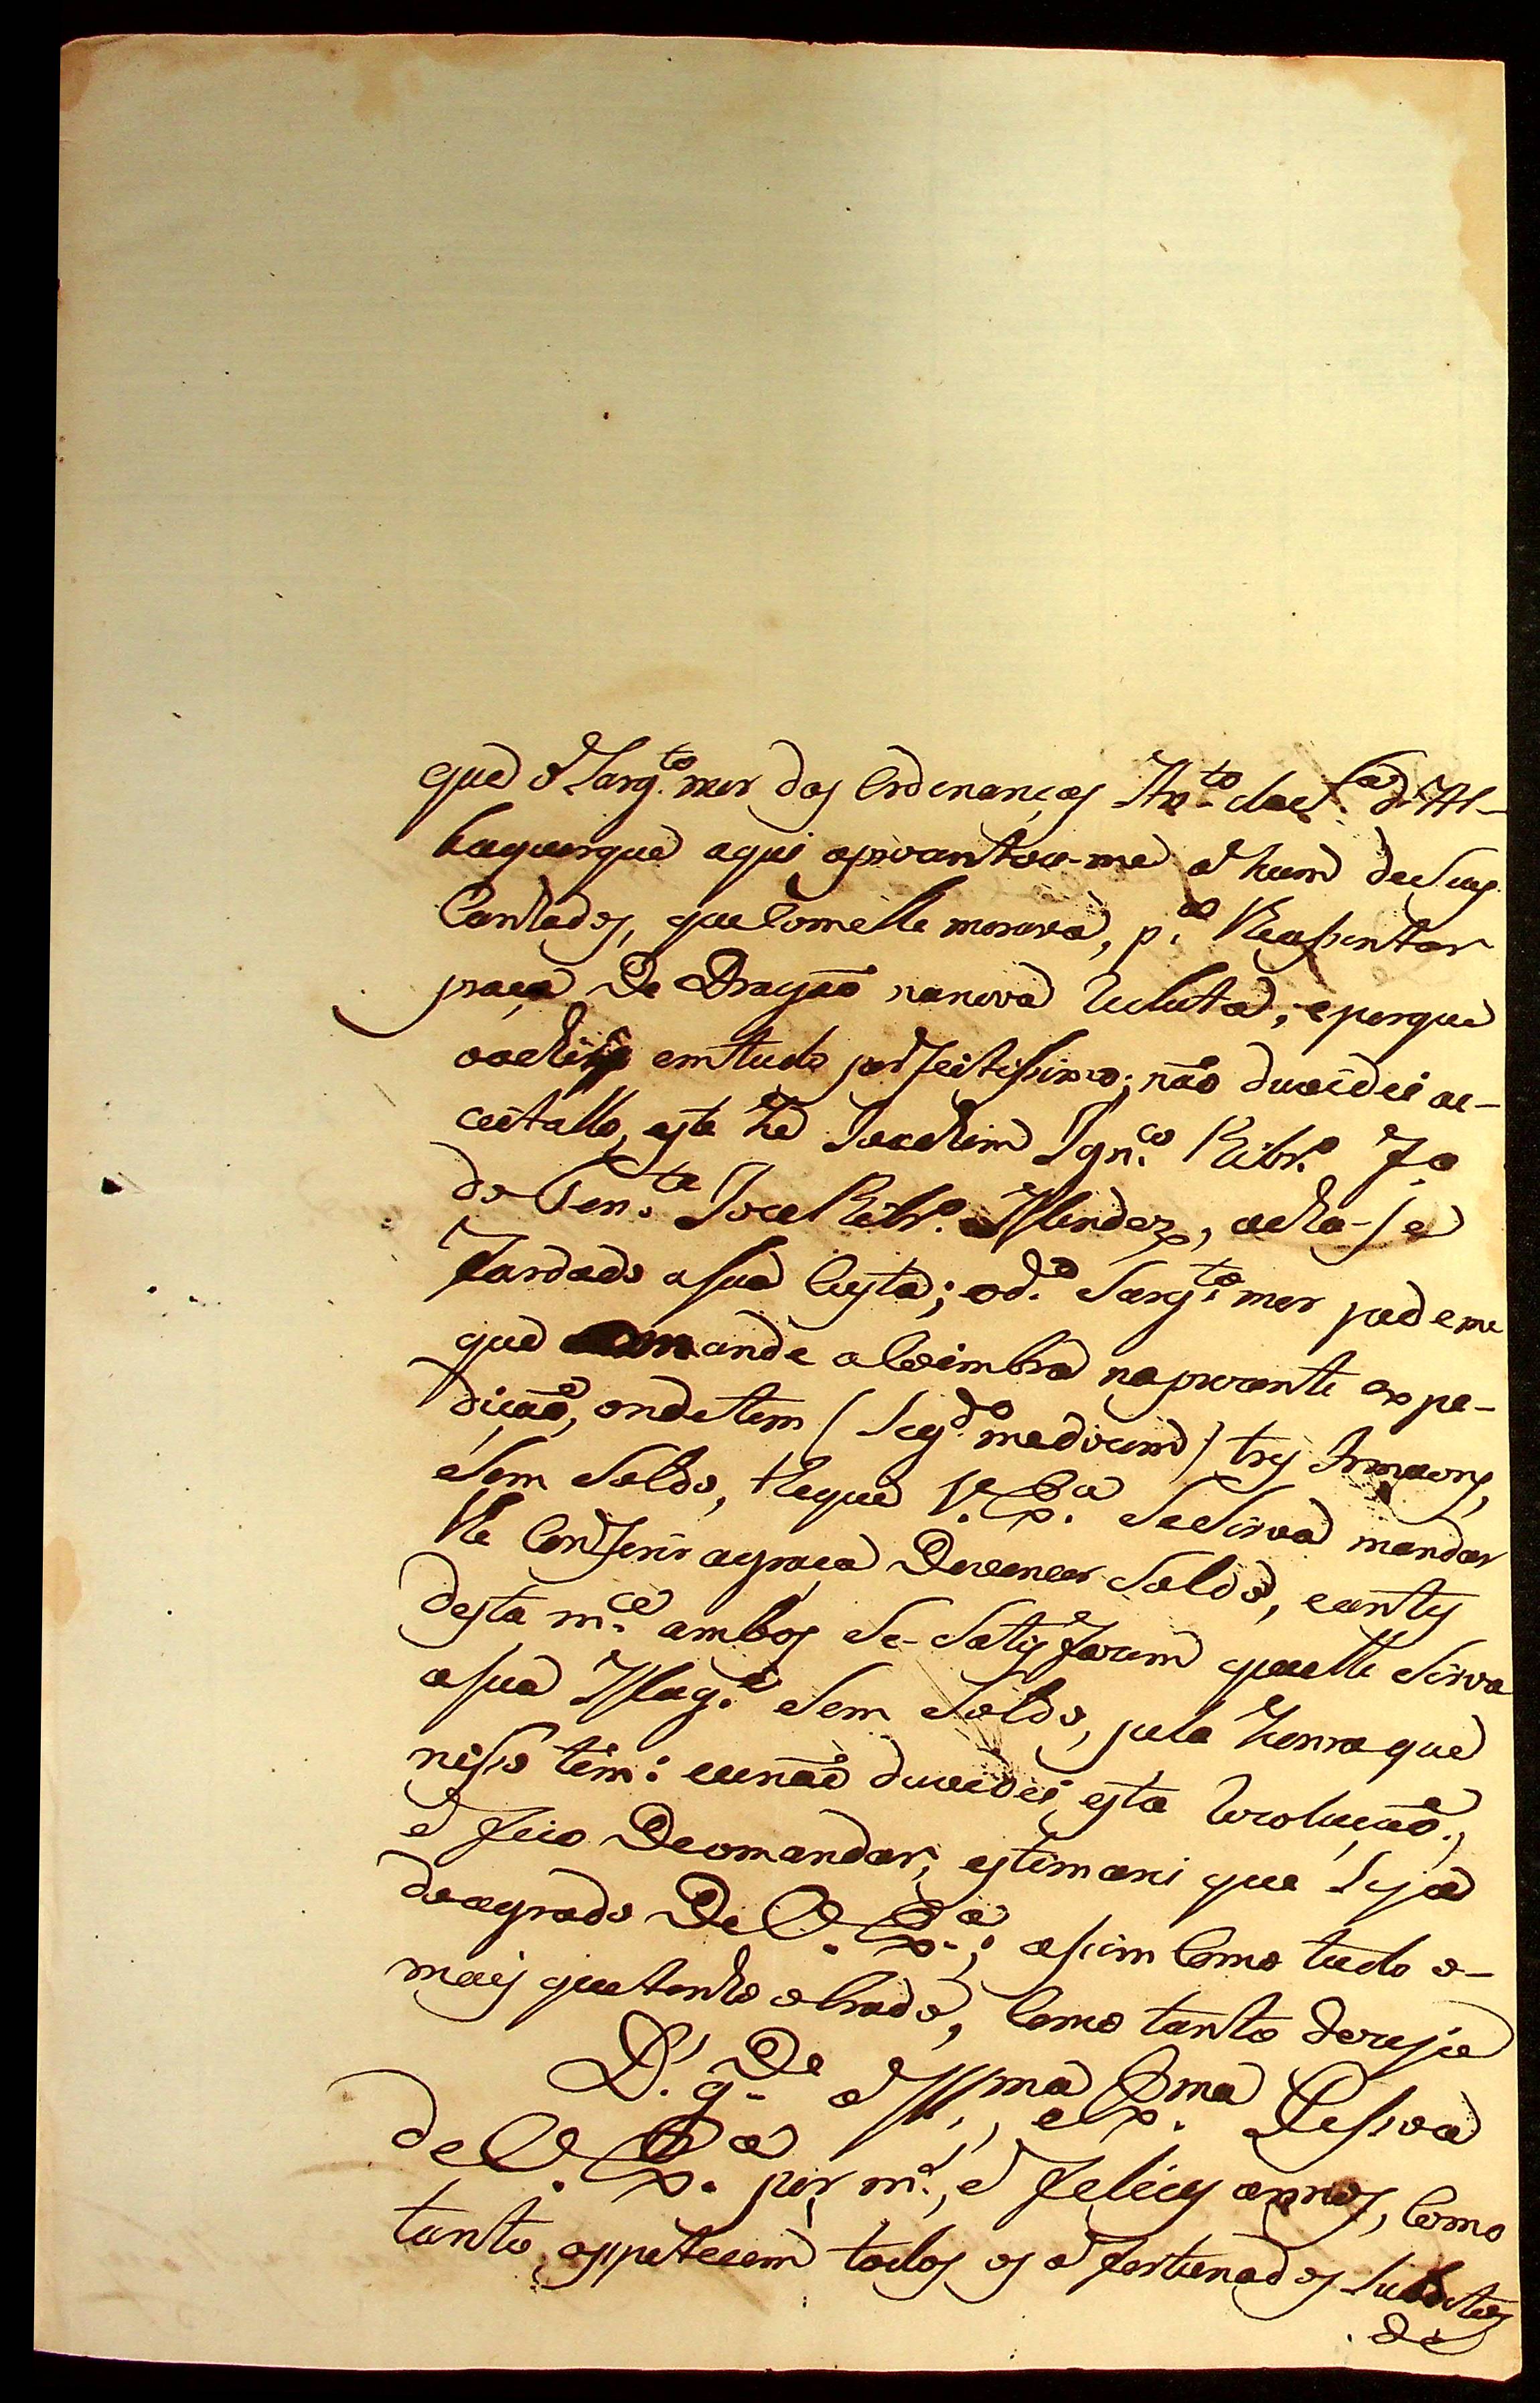 que o Sarg.to mor das Ordenanças An.to da S.a d'Al-
buquerque aqui aprezentou-me a hum de Seus
Cunhados, que Com elle morava, p.a lhe asentar
praça De Dragaõ na nova Recluta, e porque
o achei em tudo porfeitissimo; não duvidei ac-
ceitallo, este he Joachim Ign.co Ribr.o Fo
do Ten.te Joze Ribr.o Mendez, acha-se
fardado a sua Custa; o d.o Sarg.to mor pede me
que o mande a Coimbra na prezente expe-
diçaõ, onde tem (Seg.do me dicerem) tres Irmaons,
Sem Soldo, e que V. Ex.a Se Sirva mandar
lhe Conferir a graça De vencer Soldo, e antes
desta m.ce ambos Se-Satisfazem que elle Sirva
a sua Mag.e Sem Soldo, pela honra que
nisso tem: eu naõ duvidei esta Rezoluçaõ,
e fico De o mandar, estimarei que Seja
do agrado De V. Ex.a; asim Como tudo o-
mais que tenho obrado, Como tanto dezejo
D.s g.de a Ill.ma, e Ex.ma Pessoa
de V. Ex.a por m.s, e felices annos, Como
tanto appetecem todos os afortunados Subditos
de